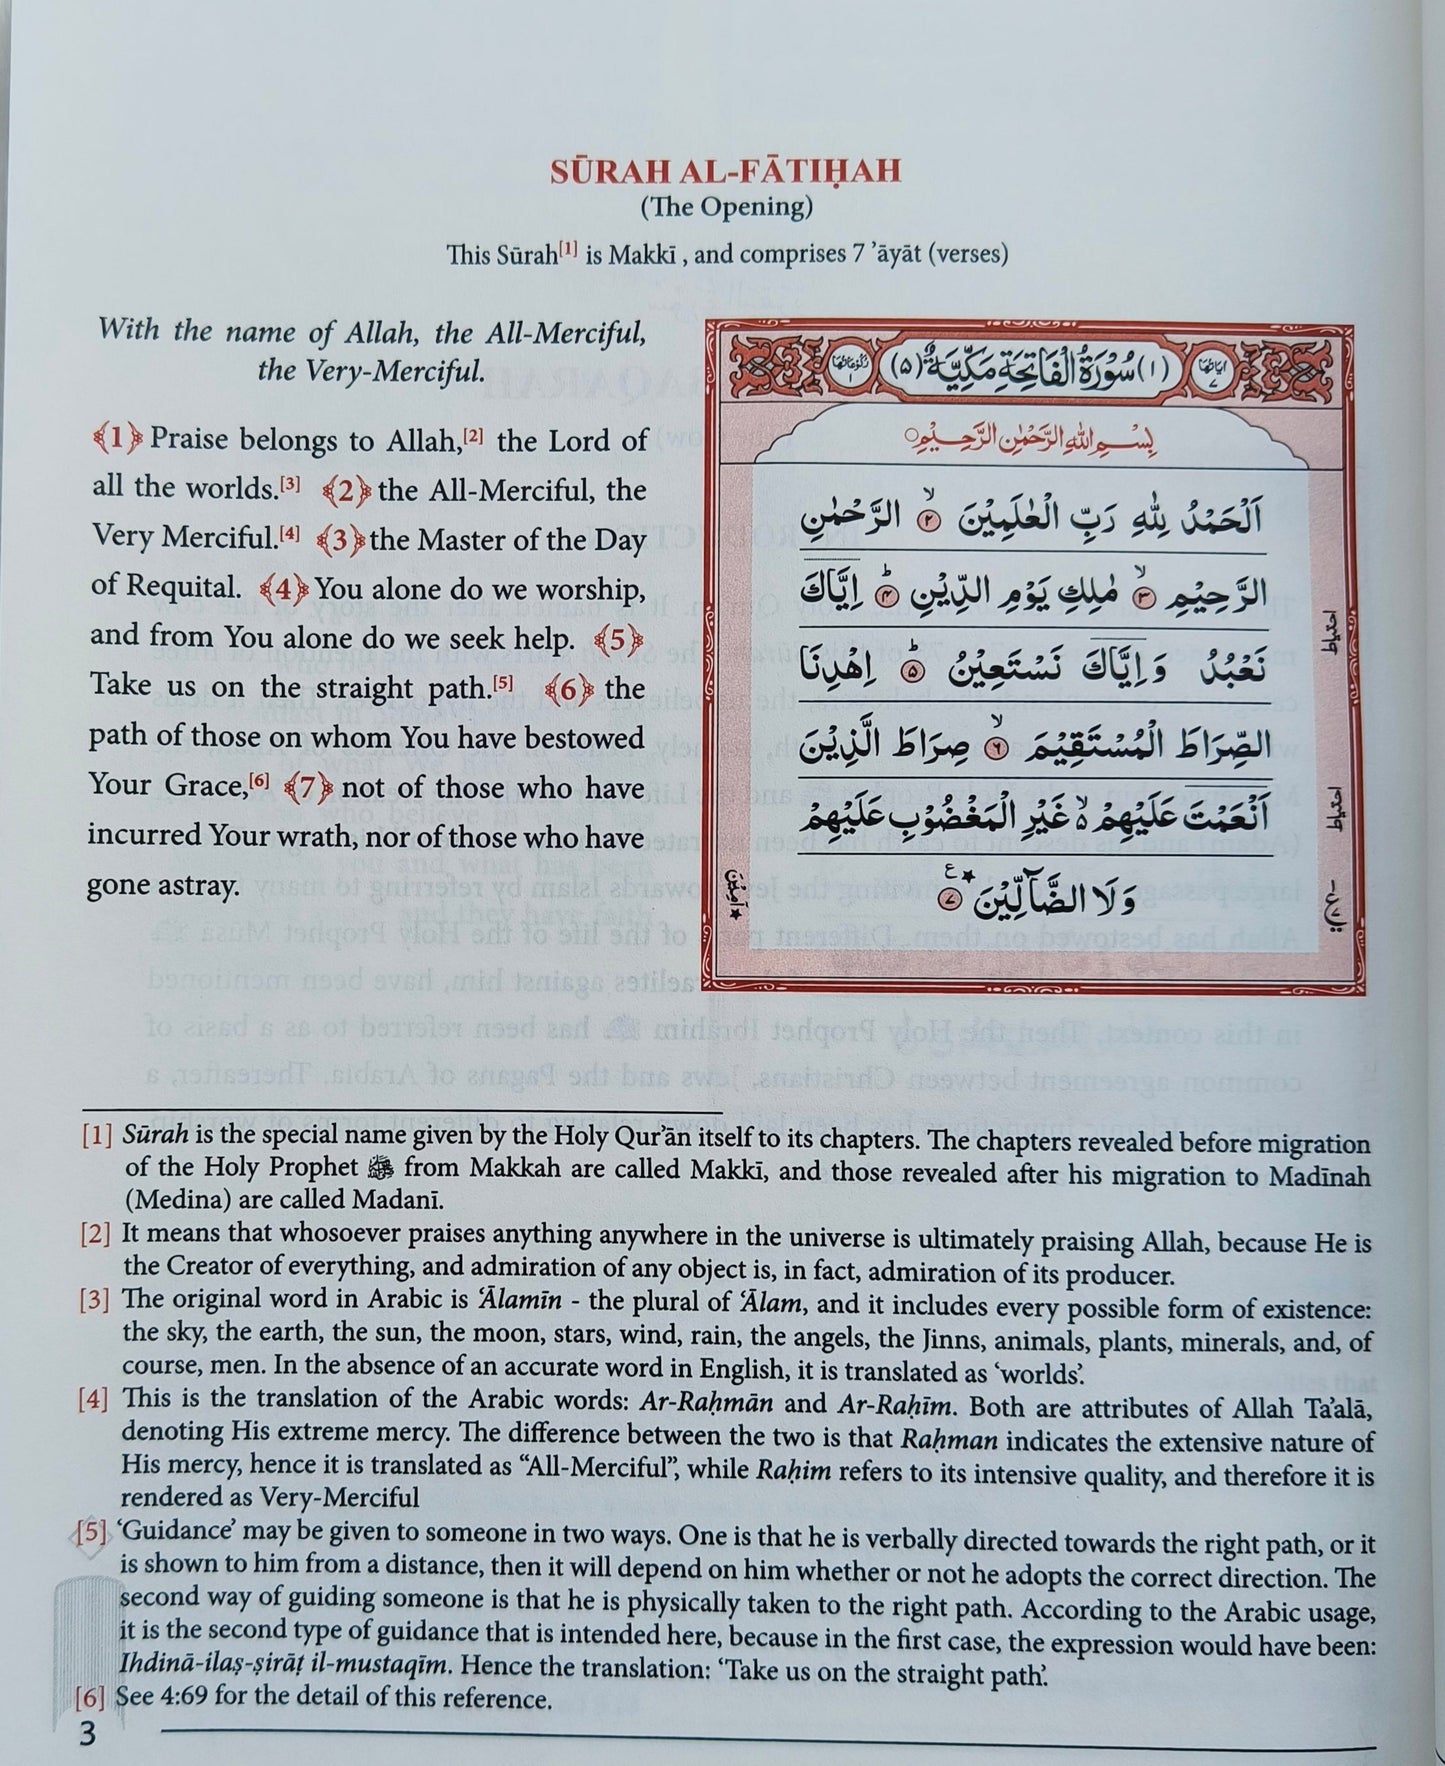 SŪRAH AL-FĀTIḤAH
(The Opening)
This Sūrah[1] is Makkī , and comprises 7 ’āyāt (verses)
With the name of Allah, the All-Merciful,
the Very-Merciful.
﴾1﴿ Praise belongs to Allah,[2] the Lord of
all the worlds.[3] ﴾2﴿ the All-Merciful, the
Very Merciful.[4] ﴾3﴿ the Master of the Day
of Requital. ﴾4﴿ You alone do we worship,
and from You alone do we seek help. ﴾5﴿
Take us on the straight path.[5] ﴾6﴿ the
path of those on whom You have bestowed
Your Grace,[6] ﴾7﴿ not of those who have
incurred Your wrath, nor of those who have
gone astray.
اٰیاتها ٧ (١) سُوْرَةُ الْفَاتِحَةِ مَكِّيَّةٌ (٥) رُكُوْعَاتُهَا ١
بِسْمِ اللهِ الرَّحْمٰنِ الرَّحِيْمِ
اَلْحَمْدُ لِلّٰهِ رَبِّ الْعٰلَمِيْنَ ۙ ٢ الرَّحْمٰنِ
الرَّحِيْمِ ۙ ٣ مٰلِكِ يَوْمِ الدِّيْنِ ؕ ٤ اِيَّاكَ
نَعْبُدُ وَاِيَّاكَ نَسْتَعِيْنُ ؕ ٥ اِهْدِنَا
الصِّرَاطَ الْمُسْتَقِيْمَ ۙ ٦ صِرَاطَ الَّذِيْنَ
اَنْعَمْتَ عَلَيْهِمْ ۙ غَيْرِ الْمَغْضُوْبِ عَلَيْهِمْ
وَلَا الضَّآلِّيْنَ ٧ ★ ع
احتیاط
احتیاط
★ اٰمِيْن
[1] Sūrah is the special name given by the Holy Qur’ān itself to its chapters. The chapters revealed before migration
of the Holy Prophet ﷺ from Makkah are called Makkī, and those revealed after his migration to Madīnah
(Medina) are called Madanī.
[2] It means that whosoever praises anything anywhere in the universe is ultimately praising Allah, because He is
the Creator of everything, and admiration of any object is, in fact, admiration of its producer.
[3] The original word in Arabic is ‘Ālamīn - the plural of ‘Ālam, and it includes every possible form of existence:
the sky, the earth, the sun, the moon, stars, wind, rain, the angels, the Jinns, animals, plants, minerals, and, of
course, men. In the absence of an accurate word in English, it is translated as ‘worlds’.
[4] This is the translation of the Arabic words: Ar-Raḥmān and Ar-Raḥīm. Both are attributes of Allah Ta’alā,
denoting His extreme mercy. The difference between the two is that Raḥman indicates the extensive nature of
His mercy, hence it is translated as “All-Merciful”, while Raḥim refers to its intensive quality, and therefore it is
rendered as Very-Merciful
[5] ‘Guidance’ may be given to someone in two ways. One is that he is verbally directed towards the right path, or it
is shown to him from a distance, then it will depend on him whether or not he adopts the correct direction. The
second way of guiding someone is that he is physically taken to the right path. According to the Arabic usage,
it is the second type of guidance that is intended here, because in the first case, the expression would have been:
Ihdinā-ilaṣ-ṣirāṭ il-mustaqīm. Hence the translation: ‘Take us on the straight path’.
[6] See 4:69 for the detail of this reference.
3